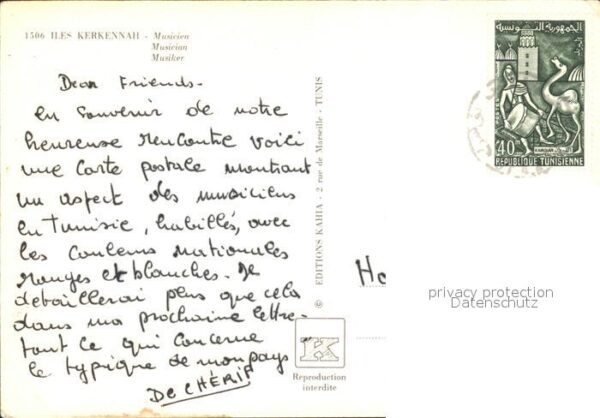 1506 ILES KERKENNAH - Musicien
Musician
Musiker
Dear Friends-
en souvenir de notre
heureuse rencontre voici
une carte postale montrant
un aspect des musiciens
en Tunisie, habillés, avec
les Couleurs Nationales
rouges et blanches. Je
detaillerai plus que cela
dans ma prochaine lettre-
tout ce qui concerne
le typique de mon pays
De CHÉRIF
© EDITIONS KAHIA - 2 rue de Marseille - TUNIS
K
Reproduction
interdite
الجمهورية التونسية
POSTES
40
KAIROUAN
REPUBLIQUE TUNISIENNE
Ho
privacy protection
Datenschutz